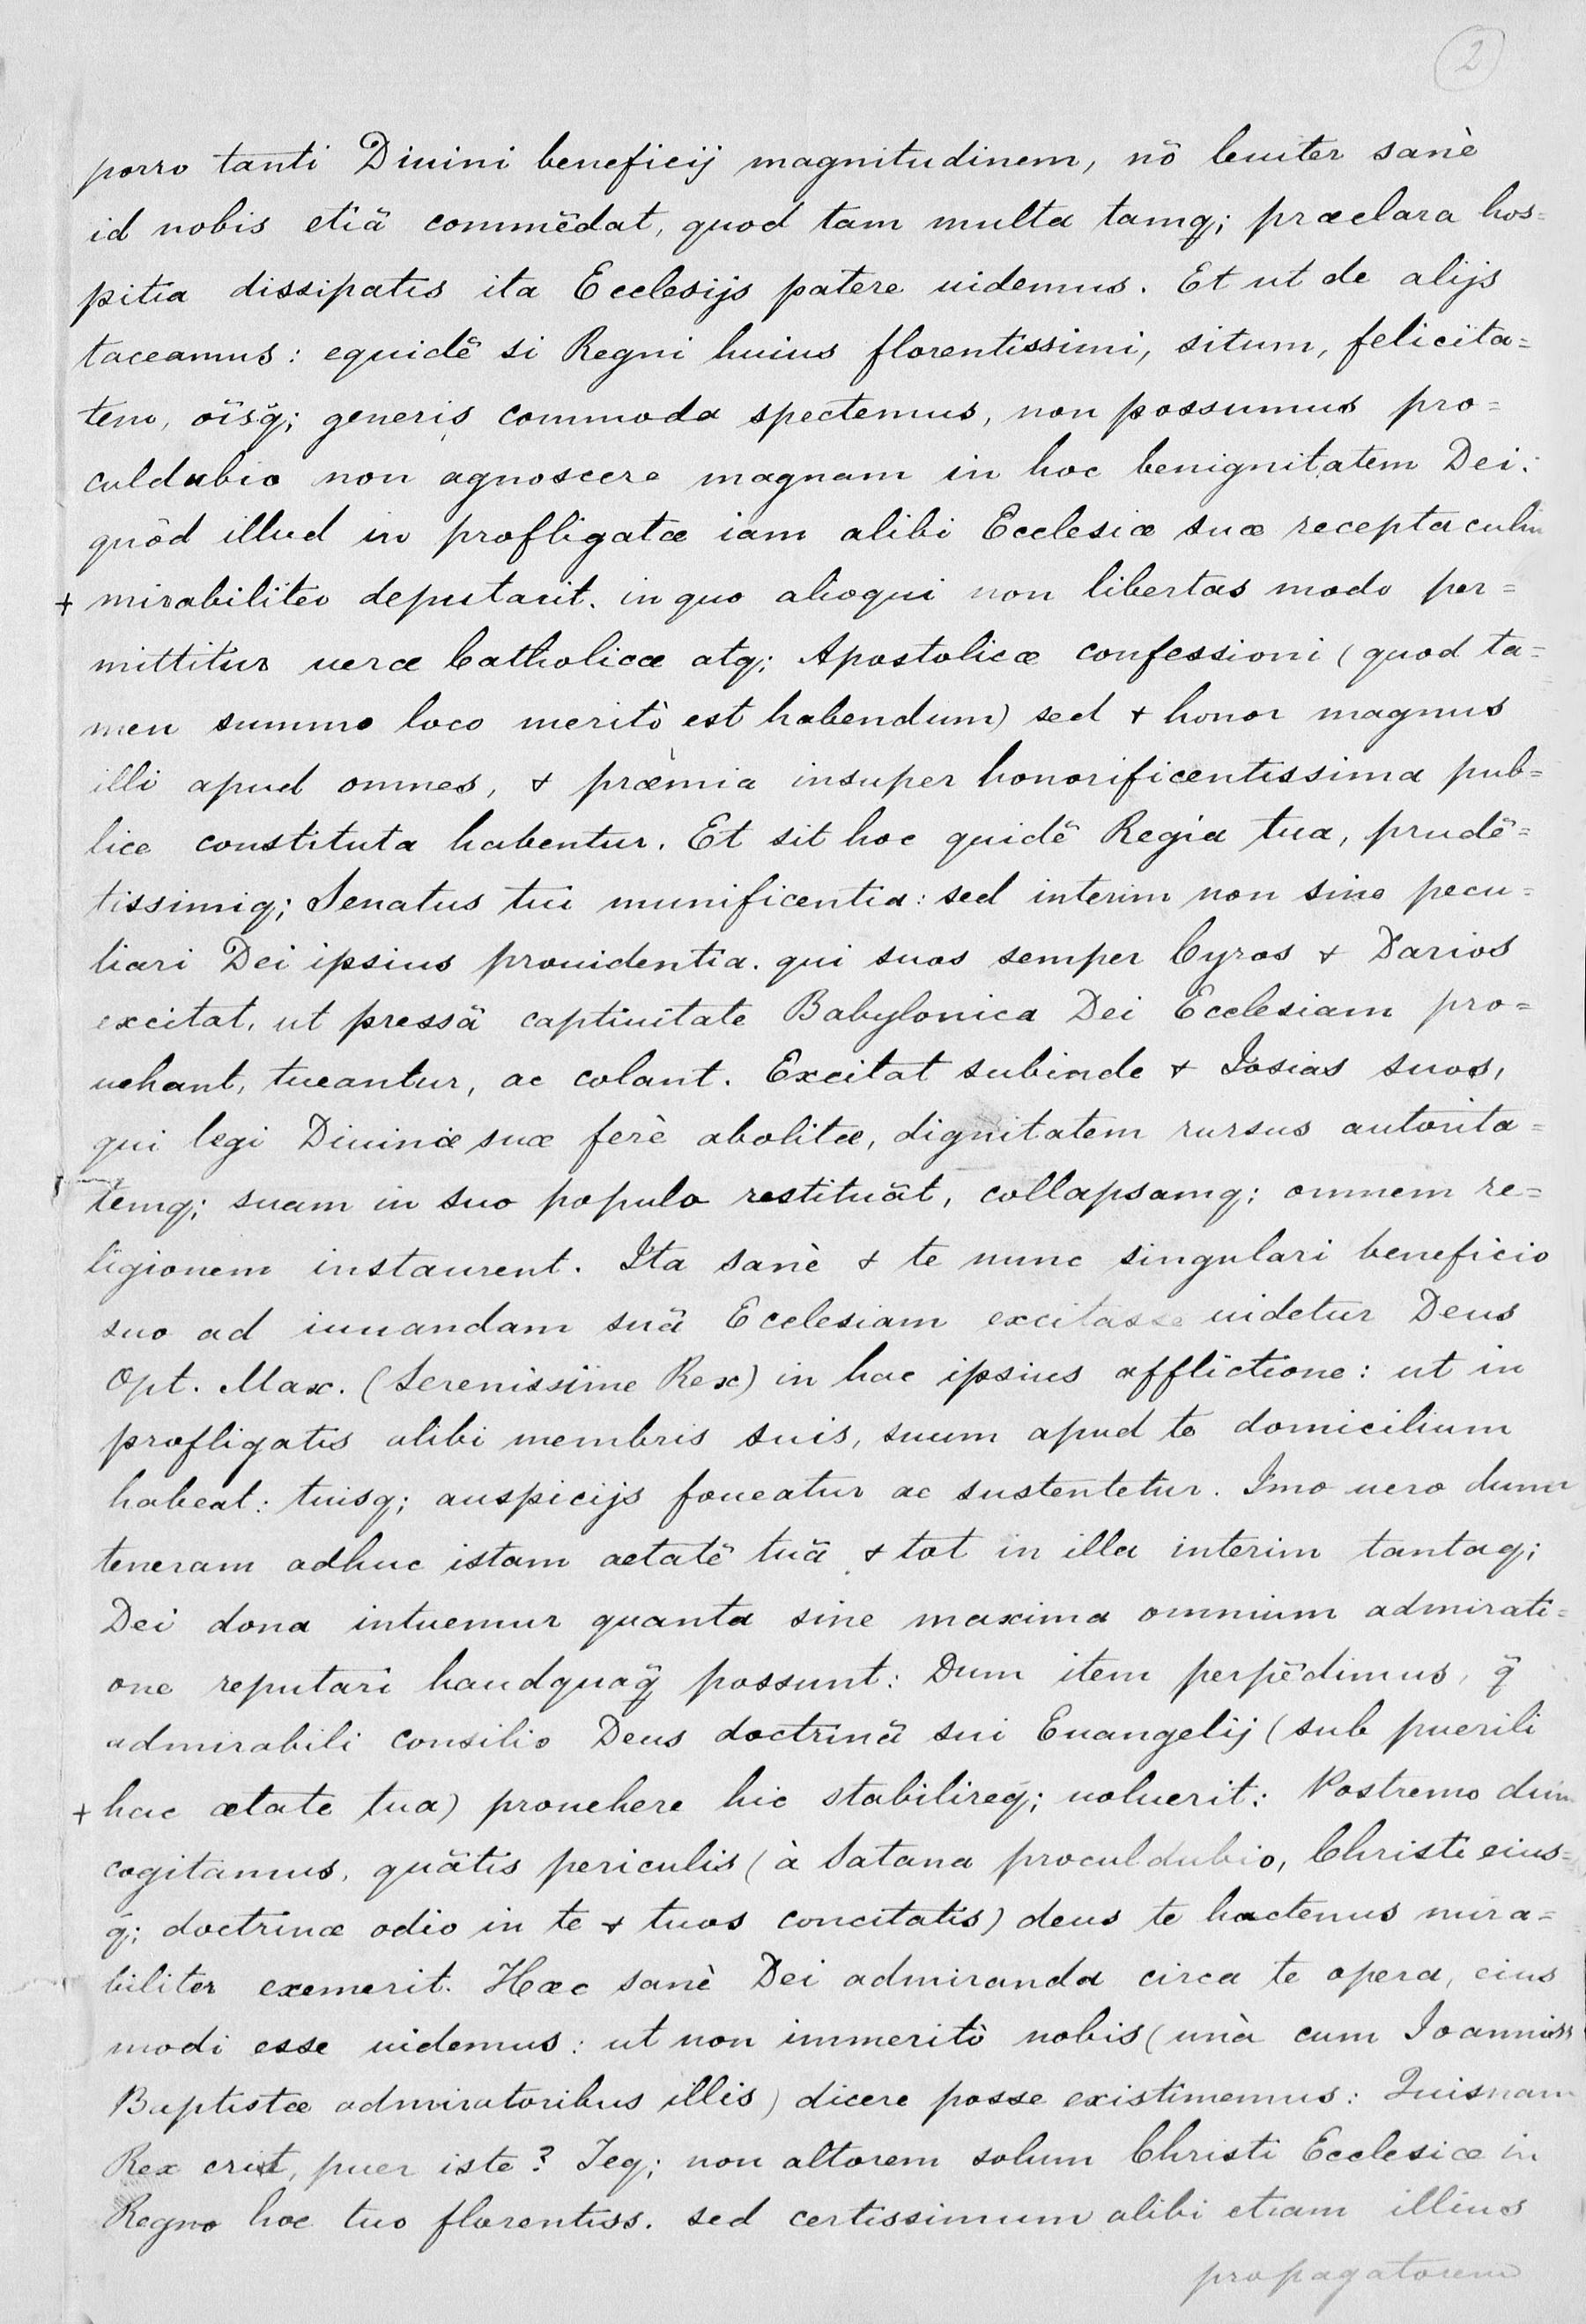 2
porro tanti Diuini beneficij magnitudinem, nõ leuiter sanè
id nobis etiã commẽdat, quod tam multa tamq; præclara hos=
pitia dissipatis ita Ecclesijs patere uidemus. Et ut de alijs
taceamus: equidẽ si Regni huius florentissimi, situm, felicita=
tem, oĩsq̃; generis commoda spectemus, non possumus pro=
culdubio non agnoscere magnam in hoc benignitatem Dei:
quòd illud in profligatæ iam alibi Ecclesiæ suæ receptaculũ
+ mirabiliter deputarit. in quo alioqui non libertas modo per=
mittitur ueræ Catholicæ atq; Apostolicæ confessioni (quod ta=
men summo loco meritò est habendum) sed & honor magnus
illi apud omnes, & præmia insuper honorificentissima pub=
lice constituta habentur. Et sit hoc quidẽ Regia tua, prudẽ=
tissimiq; Senatus tui munificentia: sed interim non sine pecu=
liari Dei ipsius prouidentia. qui suos semper Cyros & Darios
excitat, ut pressã captiuitate Babylonica Dei Ecclesiam pro=
uehant, tueantur, ac colant. Excitat subinde & Iosias suos,
qui legi Diuinæ suæ ferè abolitæ, dignitatem rursus autorita=
temq; suam in suo populo restituãt, collapsamq; omnem re=
ligionem instaurent. Ita sanè & te nunc singulari beneficio
suo ad iuuandam suã Ecclesiam excitasse uidetur Deus
Opt. Max. (Serenissime Rex) in hac ipsius afflictione: ut in
profligatis alibi membris suis, suum apud te domicilium
habeat: tuisq; auspicijs foueatur ac sustentetur. Imo uero dum
teneram adhuc istam aetatẽ tuã & tot in illa interim tantaq;
Dei dona intuemur quanta sine maxima omnium admirati=
one reputari haudquaq̃ possunt: Dum item perpẽdimus, q̃
admirabili consilio Deus doctrinã sui Euangelij (sub puerili
+ hac ætate tua) prouehere hic stabilireq̃; uoluerit: Postremo dum
cogitamus, quãtis periculis (à Satana proculdubio, Christi eius=
q̃; doctrinæ odio in te & tuos concitatis) deus te hactenus mira=
biliter exemerit. Hæc sanè Dei admiranda circa te opera, eius
modi esse uidemus: ut non immeritò nobis (unà cum Ioannis
Baptistæ admiratoribus illis) dicere posse existimemus: Quisnam
Rex erit, puer iste? Teq; non altorem solum Christi Ecclesiæ in
Regno hoc tuo florentiss. sed certissimum alibi etiam illius
propagatorem